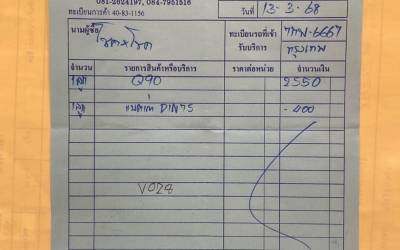 081-2624197, 084-7951516
ทะเบียนการค้า 40-83-1156
วันที่ 12-3-68
นามผู้ซื้อ โชคนำโชค
ทะเบียนรถที่เข้ารับบริการ 6667 กรุงเทพ
จำนวน รายการสินค้าหรือบริการ ราคาต่อหน่วย จำนวนเงิน
1 ลูก Q90 2550
1 ลูก แบตเก่า DIN75 -400
V028